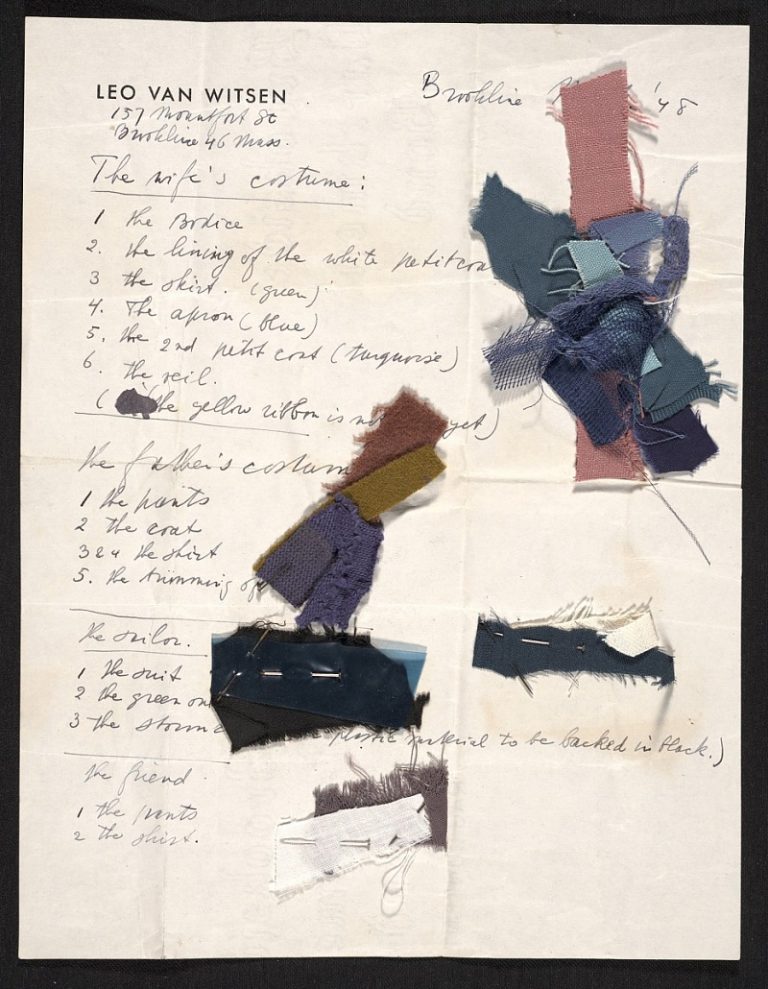 LEO VAN WITSEN
157 Mountfort St
Brookline 46 Mass.
Brookline '48
The wife's costume:
1 the Bodice
2. the lining of the white petitcoa
3 the skirt. (green)
4. The apron (blue)
5. the 2nd petitcoat (turquoise)
6. the veil.
( the yellow ribbon is not yet)
the father's costum
1 the pants
2 the coat
3 & 4 the shirt
5. the trimming of
the sailor.
1 the suit
2 the green on
3 the storm plastic material to be backed in black.)
the friend
1 the pants
2 the shirt.